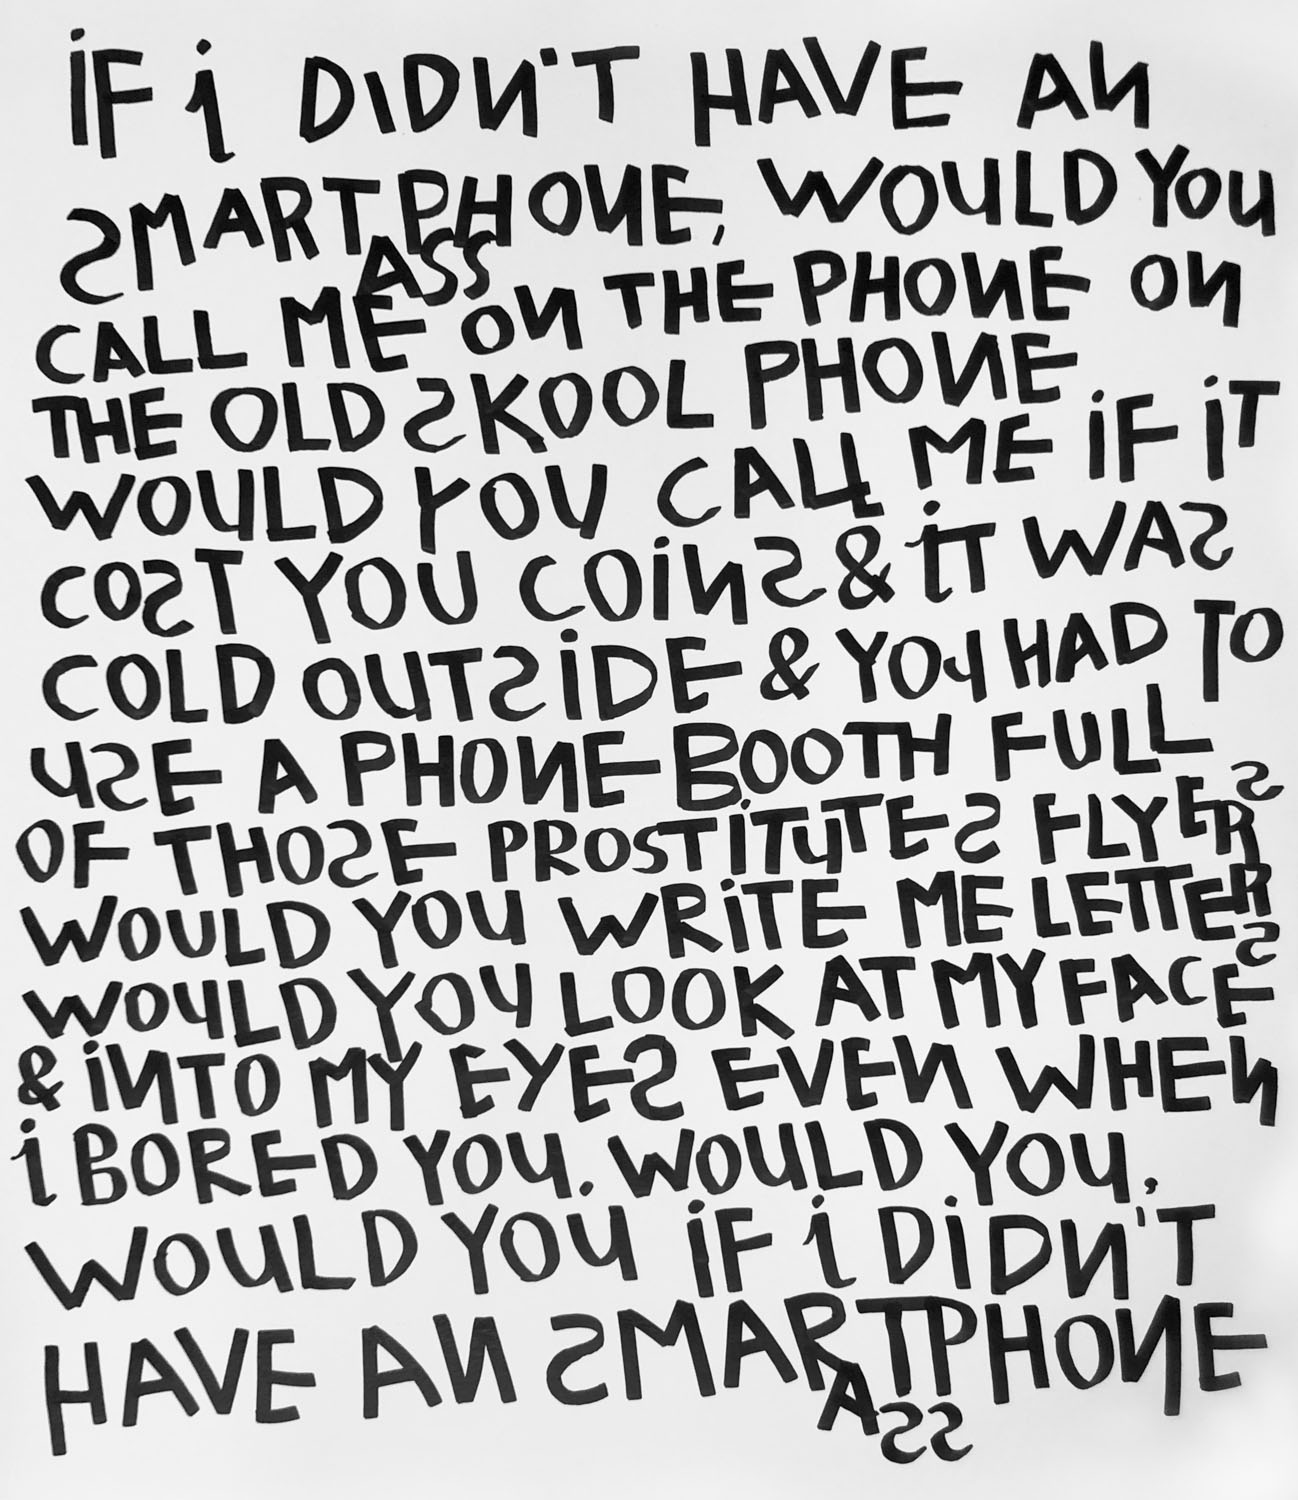 iF i DiDN'T HAVE AN
SMARTPHONE, WOULD YOU
ASS
CALL ME ON THE PHONE ON
THE OLD SKOOL PHONE
WOULD YOU CALL ME iF iT
COST YOU COiNS & iT WAS
COLD OUTSiDE & YOU HAD TO
USE A PHONE BOOTH FULL
OF THOSE PROSTiTUTES FLYERS
WOULD YOU WRiTE ME LETTERS
WOULD YOU LOOK AT MY FACE
& iNTO MY EYES EVEN WHEN
i BORED YOU. WOULD YOU,
WOULD YOU iF i DiDN'T
HAVE AN SMARTPHONE
ASS